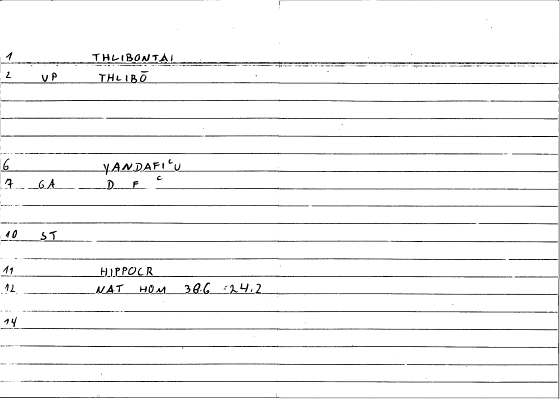 1 THLIBONTAI
2 VP THLIBŌ
6 YANDAFIᶜU
7 GA D F ᶜ
10 ST
11 HIPPOCR
12 NAT HOM 38.6 :24.2
14